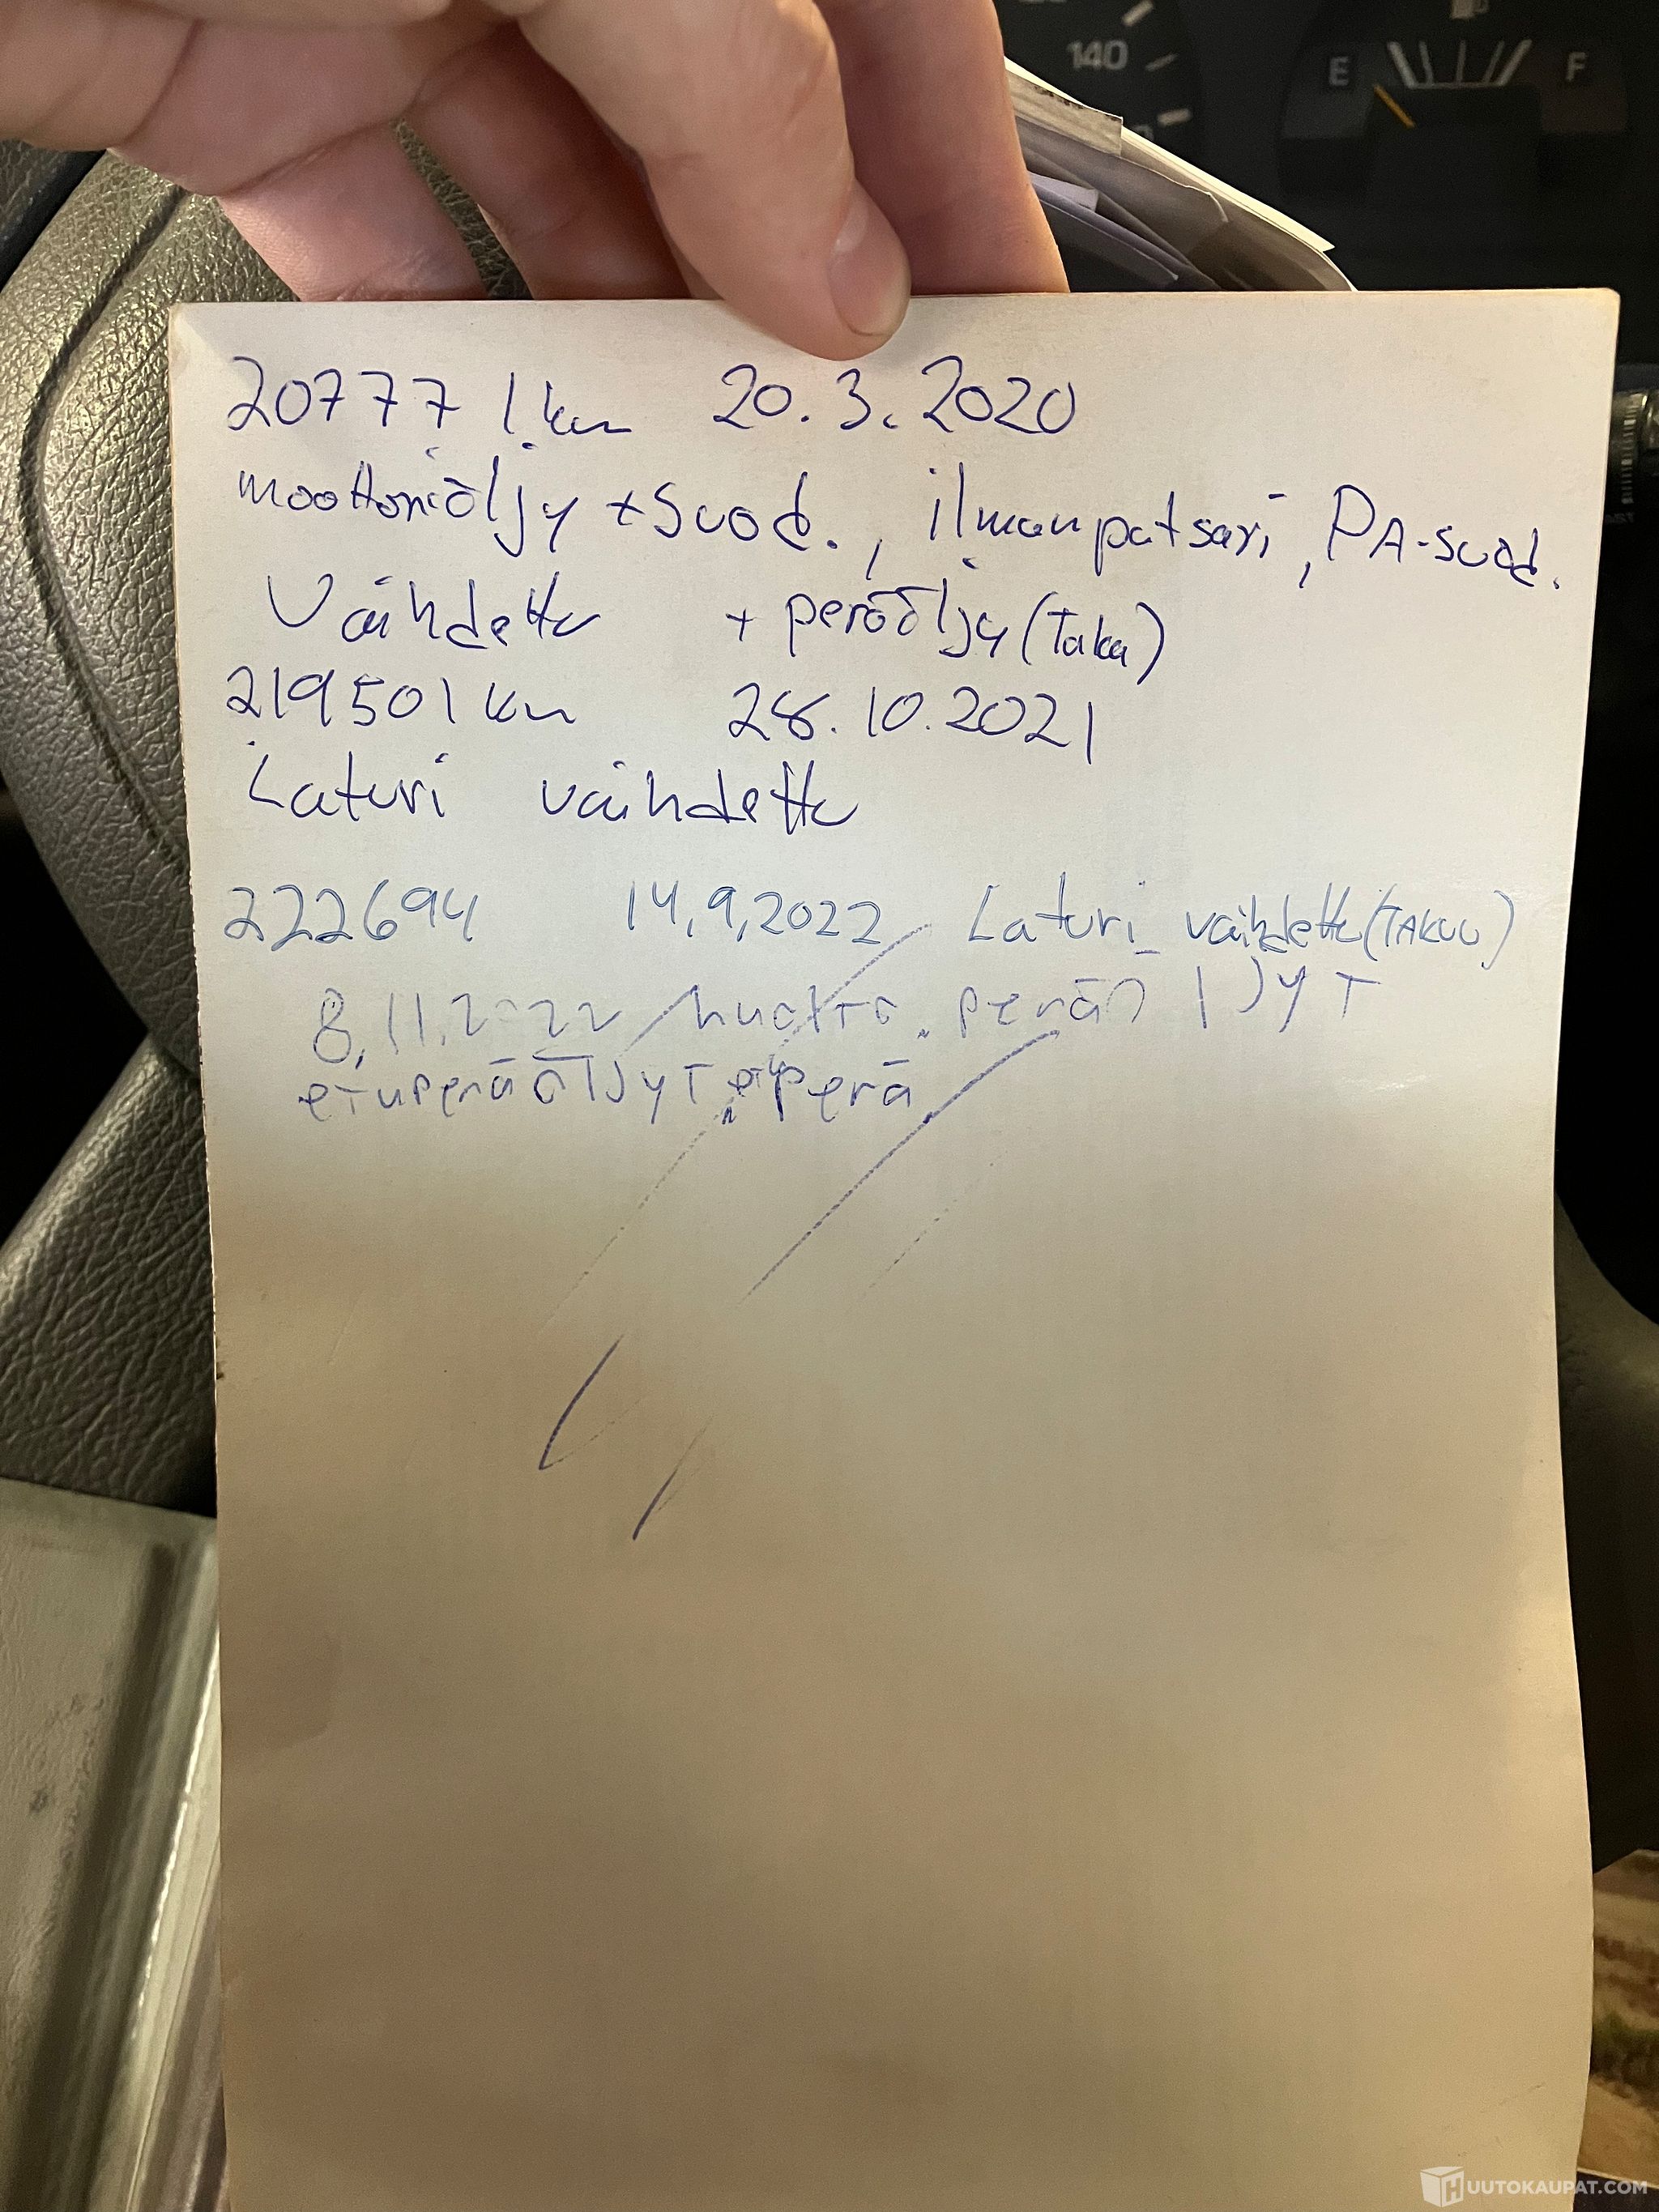 140
E F
207771 km 20.3.2020
moottoriöljy + suod., ilmanpatsari, PA-suod.
Vaihdettu + peräöljy (taka)
219501 km 28.10.2021
Laturi vaihdettu
222694 14.9.2022 Laturi vaihdettu (TAKUU)
8.11.2022 huolto. peräöljyt
etuperäöljyt perä
HUUTOKAUPAT.COM